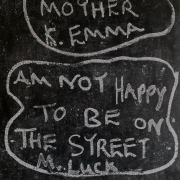 MOTHER
K. EMMA
AM NOT HAPPY
TO BE ON
THE STREET
M. LUCK